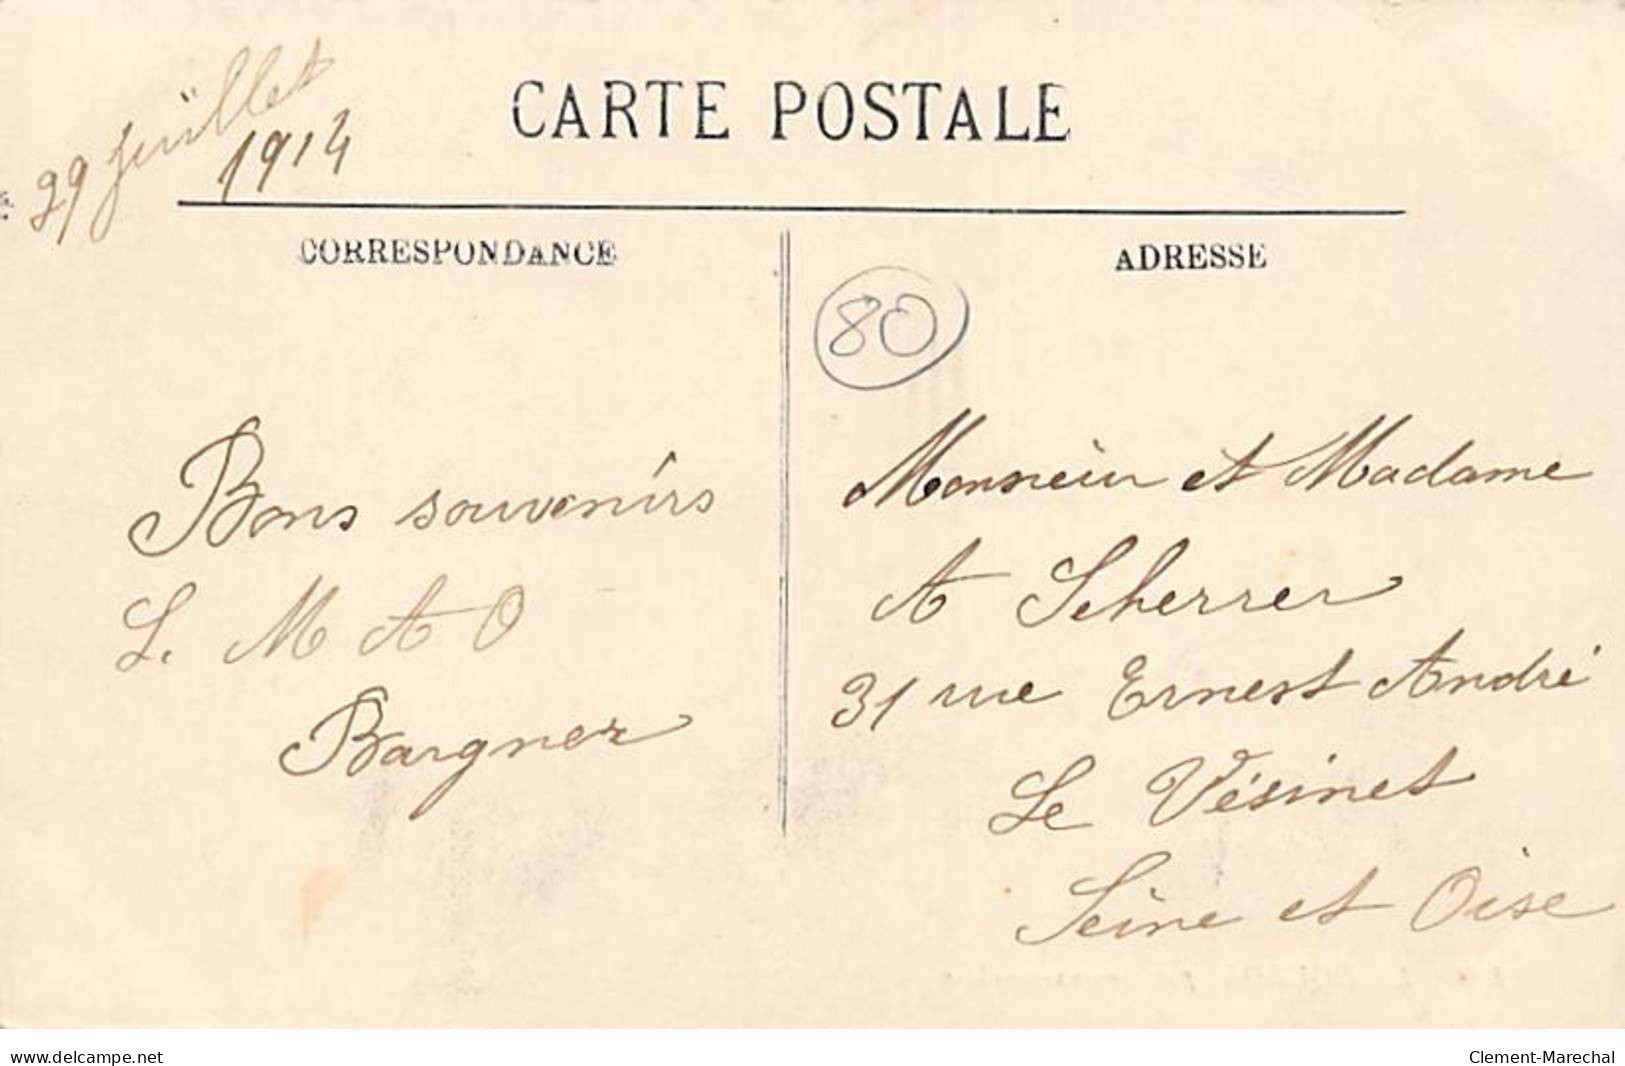 29 juillet
1914
CARTE POSTALE
CORRESPONDANCE
ADRESSE
80
Bons souvenirs
L. M A O
Bargner
Monsieur et Madame
A Scherrer
31 rue Ernest André
Le Vésinet
Seine et Oise
www.delcampe.net
Clement-Marechal